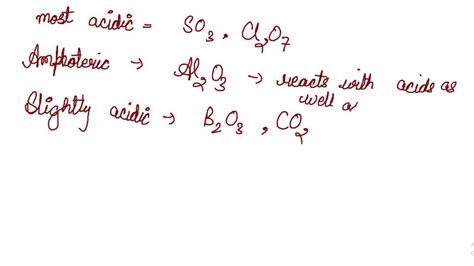 most acidic = SO₃, Cl₂O₇
Amphoteric → Al₂O₃ → reacts with acids as
well a
Slightly acidic → B₂O₃, CO₂,